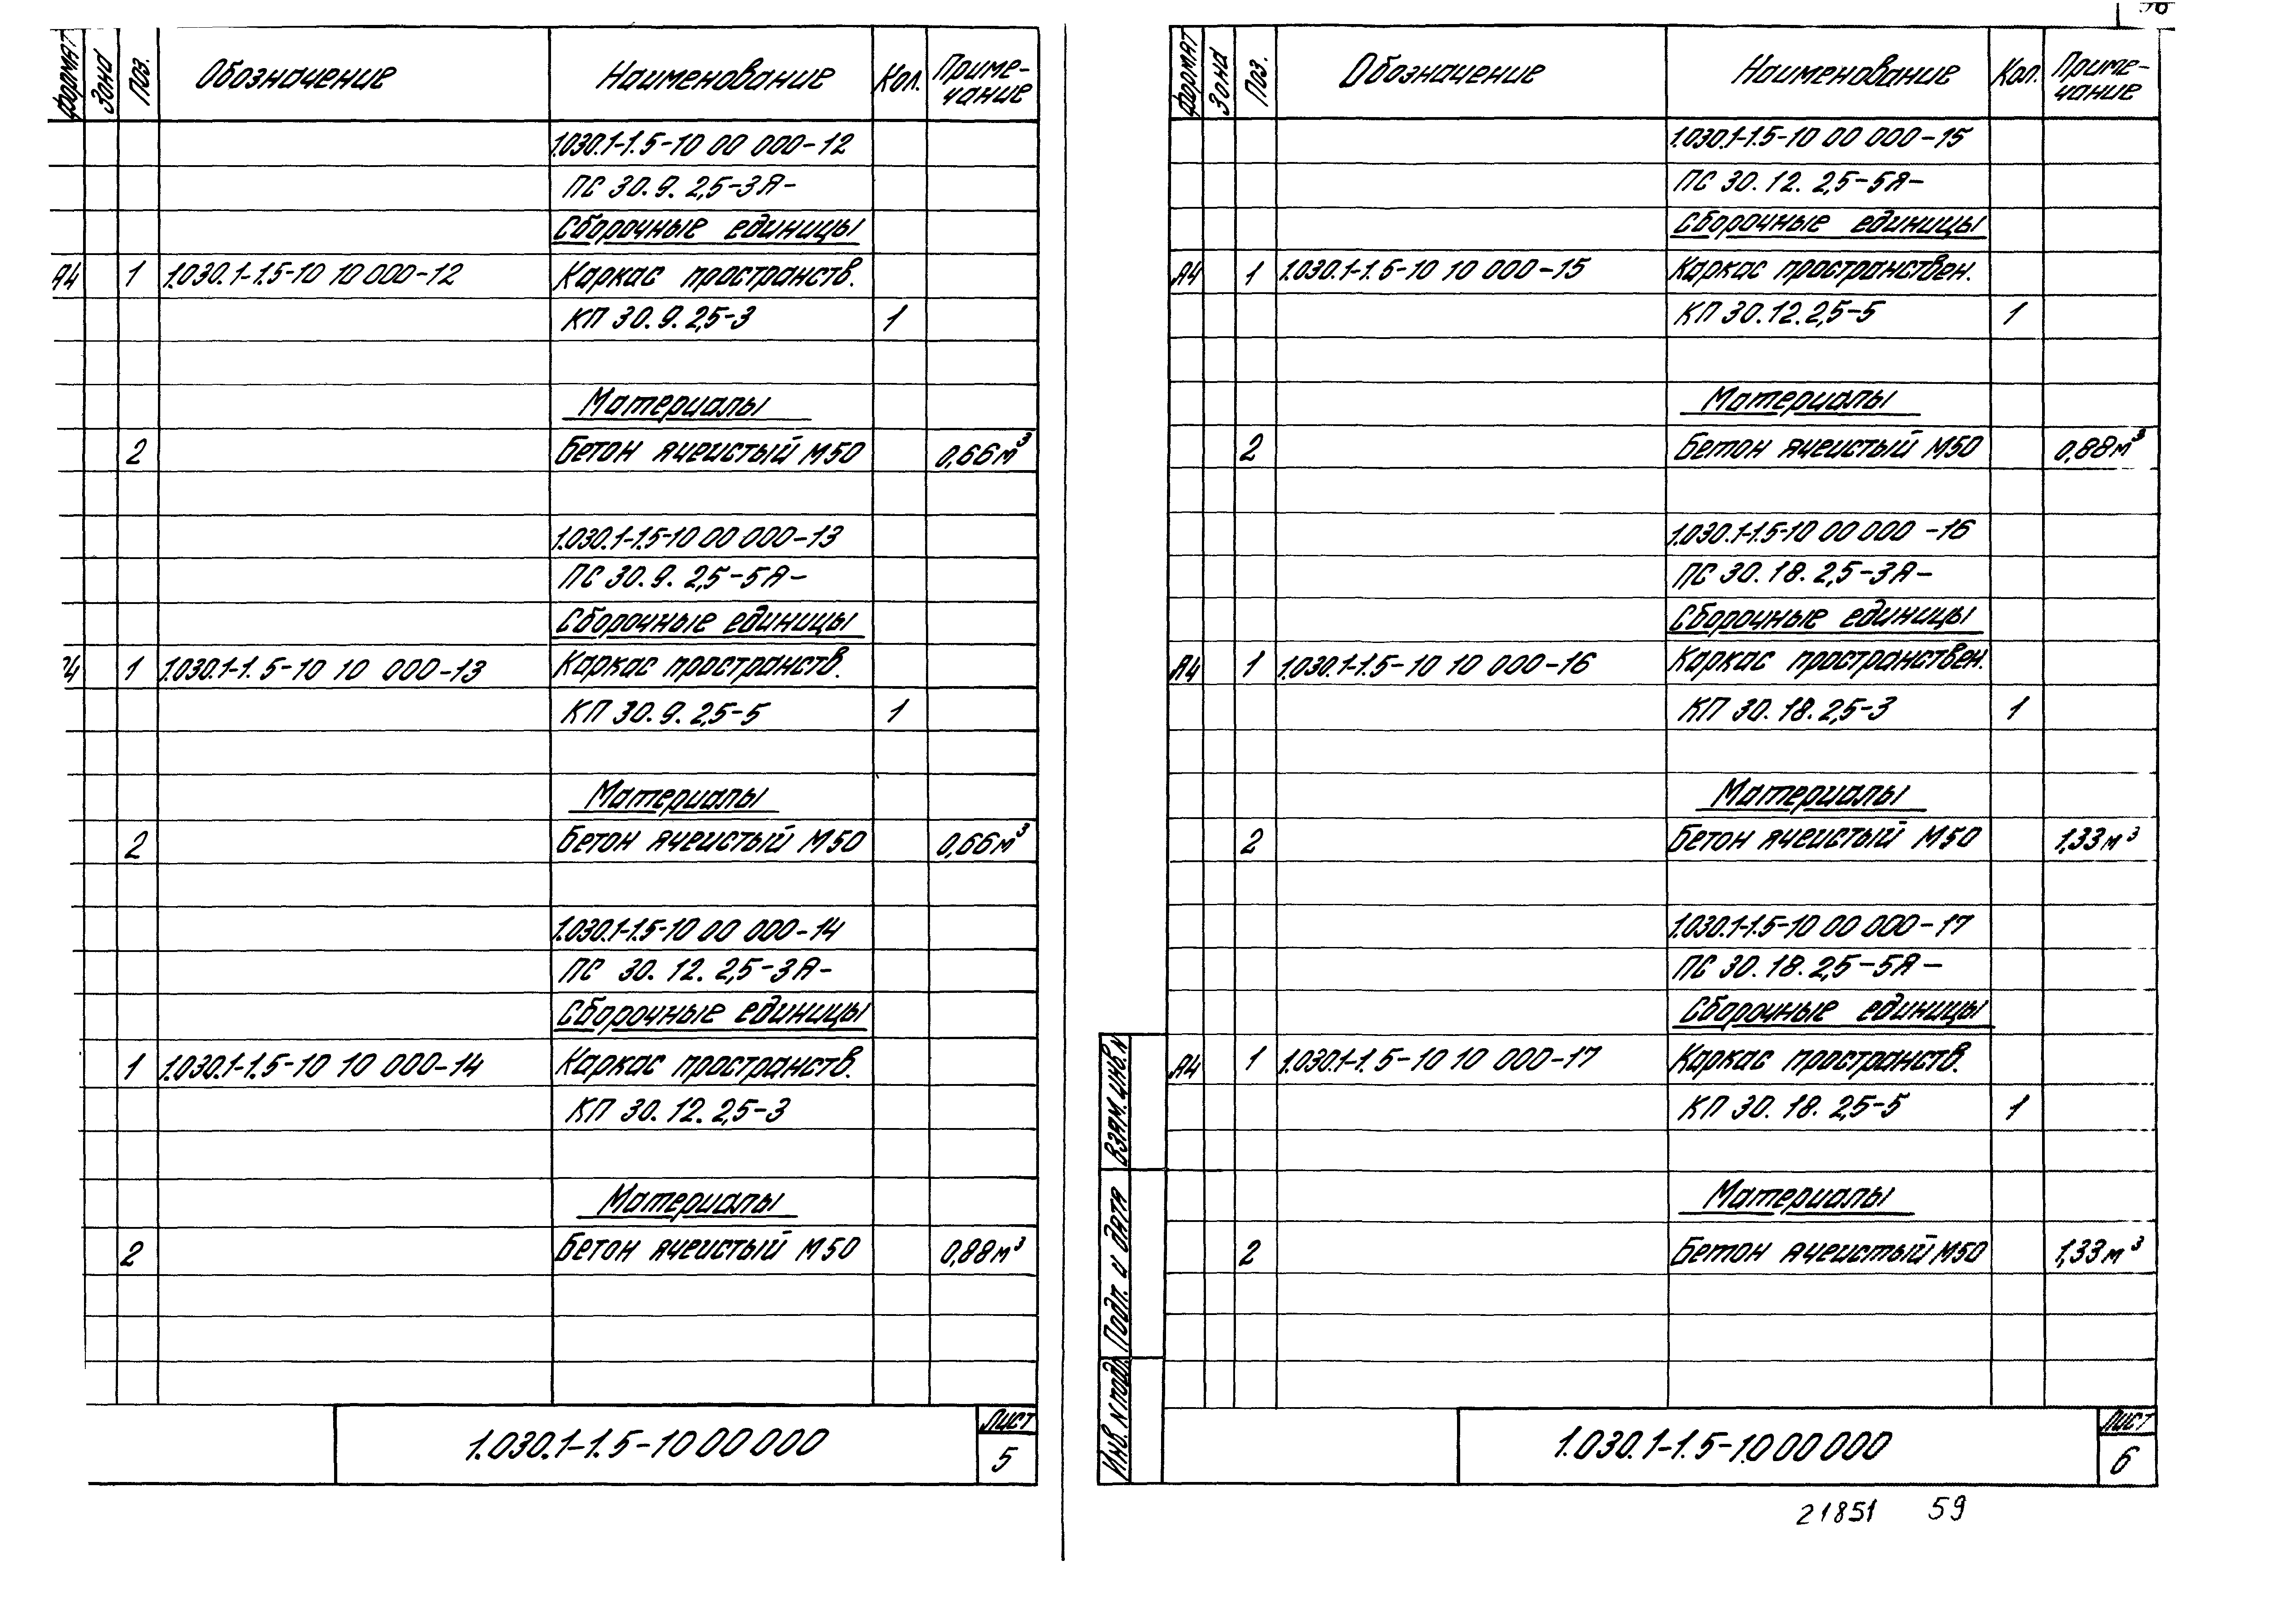 Формат Зона Поз. Обозначение Наименование Кол. Приме-
чание
1.030.1-1.5-10 00 000-12
ПС 30.9.2,5-3Я-
Сборочные единицы
А4 1 1.030.1-1.5-10 10 000-12 Каркас пространств.
КП 30.9.2,5-3 1
Материалы
2 Бетон ячеистый М50 0,66м³
1.030.1-1.5-10 00 000-13
ПС 30.9.2,5-5Я-
Сборочные единицы
1 1.030.1-1.5-10 10 000-13 Каркас пространств.
КП 30.9.2,5-5 1
Материалы
2 Бетон ячеистый М50 0,66м³
1.030.1-1.5-10 00 000-14
ПС 30.12.2,5-3Я-
Сборочные единицы
1 1.030.1-1.5-10 10 000-14 Каркас пространств.
КП 30.12.2,5-3
Материалы
2 Бетон ячеистый М50 0,88м³
1.030.1-1.5-10 00 000
Лист
5
Формат Зона Поз. Обозначение Наименование Кол. Приме-
чание
1.030.1-1.5-10 00 000-15
ПС 30.12.2,5-5Я-
Сборочные единицы
А4 1 1.030.1-1.5-10 10 000-15 Каркас пространствен.
КП 30.12.2,5-5 1
Материалы
2 Бетон ячеистый М50 0,88м³
1.030.1-1.5-10 00 000-16
ПС 30.18.2,5-3Я-
Сборочные единицы
А4 1 1.030.1-1.5-10 10 000-16 Каркас пространствен.
КП 30.18.2,5-3 1
Материалы
2 Бетон ячеистый М50 1,33м³
1.030.1-1.5-10 00 000-17
ПС 30.18.2,5-5Я-
Сборочные единицы
А4 1 1.030.1-1.5-10 10 000-17 Каркас пространств.
КП 30.18.2,5-5 1
Материалы
2 Бетон ячеистый М50 1,33м³
Взам.инв.N
Подп. и дата
Инв.Nподл.
1.030.1-1.5-1000 000
Лист
6
21851 59